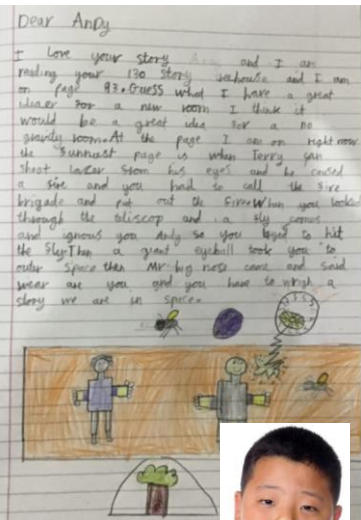 Dear Andy
I Love your story and I am
reading your 130 Story treehouse and I am
on page 93. Guess what I have a great
idea for a new room I think it
would be a great idea for a no
gravity room. At the page I am on right now
the funnest page is when Terry can
shoot laser from his eyes and he caused
a fire and you had to call the fire
brigade and put out the fire. When you looked
through the and a fly comes
and you Andy so you to hit
the fly. Then a giant eyeball took you to
outer space then Mr. big nose came and said
wear are you and you have to a
story we are in space.